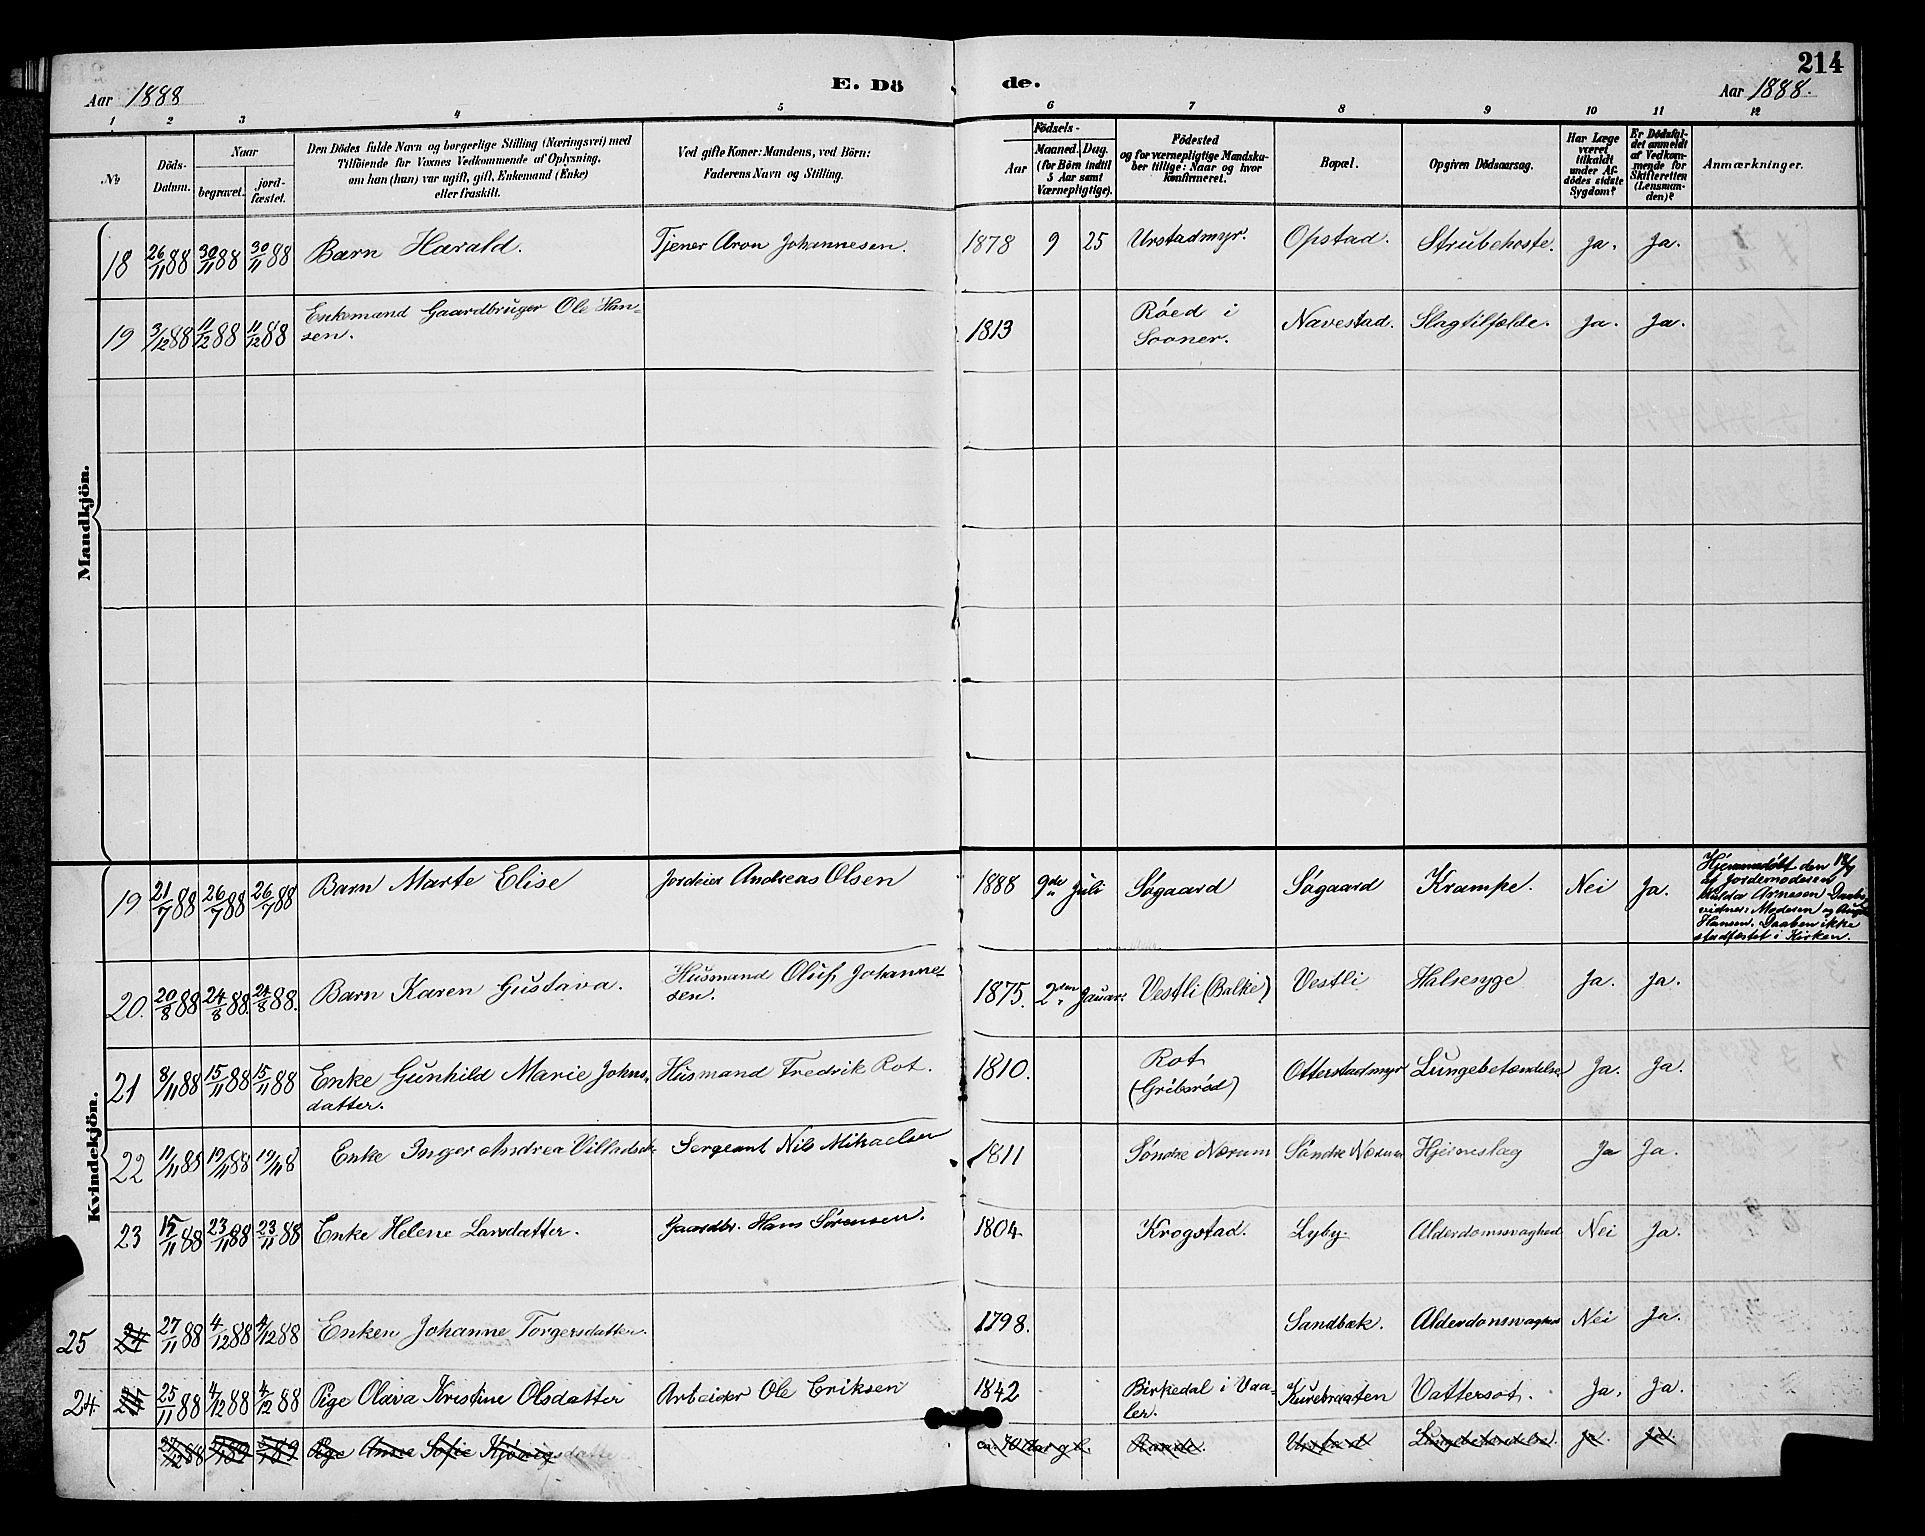 214
Aar 1888
E. Dö
de.
Aar 1888.
1 2 3 4 5 6 7 8 9 10 11 12
No
Döds-
Datum.
Naar
begravet.
jord-
fæstet.
Den Dödes fulde Navn og borgerlige Stilling (Næringsvei) med
Tilföiende for Voxnes Vedkommende af Oplysning,
om han (hun) var ugift, gift, Enkemand (Enke)
eller fraskilt.
Ved gifte Koner: Mandens, ved Börn:
Faderens Navn og Stilling.
Födsels-
Aar
Maaned. Dag.
(for Börn indtil
5 Aar samt
Værnepligtige).
Födested
og for værnepligtige Mandska-
ber tillige: Naar og hvor
konfirmeret.
Bopæl.
Opgiven Dödsaarsag.
Har Læge
været
tilkaldt
under Af-
dödes sidste
Sygdom?
Er Dödsfal-
det anmeldt
af Vedkom-
mende for
Skifteretten
(Lensman-
den)?
Anmærkninger.
Mandkjön.
18 26/11 88 30/11 88 30/11 88 Barn Harald. Tjener Aron Johannesen. 1878 9 25 Urstadmyr. Opstad. Strubehoste. Ja. Ja.
19 3/12 88 11/12 88 11/12 88 Enkemand Gaardbruger Ole Han-
sen. 1813 Röed i
Sooner. Navestad. Slagtilfælde. Ja. Ja.
Kvindekjön.
19 21/7 88 26/7 88 26/7 88 Barn Marte Elise Jordeier Andreas Olsen 1888 9de Juli Søgaard Søgaard Krampe. Nei Ja. Hjemmedøbt den
af Jordemoderen
Hulda Arnesen
vidner: Moderen og
Hansen. Daaben ikke
stadfæstet i Kirken.
20. 20/8 88 24/8 88. 24/8 88. Barn Karen Gustava. Husmand Oluf Johanne-
sen. 1875. 2den Januar: Vestli (Balke) Vestli Halsesyge Ja. Ja.
21 8/11 88 15/11 88 15/11 88 Enke Gunhild Marie Johns-
datter. Husmand Fredrik Rot. 1810. Rot
(Gribsrød) Otterstadmyr Lungebetændelse Ja. Ja.
22 11/11 88 19/11 88 19/11 8 Enke Inger Andrea Villadsdr Sergeant Nils Mikaelsen 1811 Søndre Nærum Søndre Nærum Hjerneslag Ja Ja.
23 15/11 88 23/11 88 23/11 88 Enke Helene Larsdatter. Gaardbr. Hans Sørensen. 1804 Krogstad. Lyby. Alderdomssvaghed Nei Ja.
25 24 27/11 88 4/12 88 4/12 88 Enken Johanne Torgersdatter. 1798. Sandbæk. Alderdomssvaghed Nei Ja.
24. 25 25/11 88 4/12 88 4/12 88 Pige Olava Kristine Olsdatter Arbeider Ole Eriksen 1842 Birkedal i Vaa-
ler. Kurebraaten Vattersot. Ja. Ja.
27/12 88 Pige Anna Sofie Lungebetændelse. Ja. Ja.